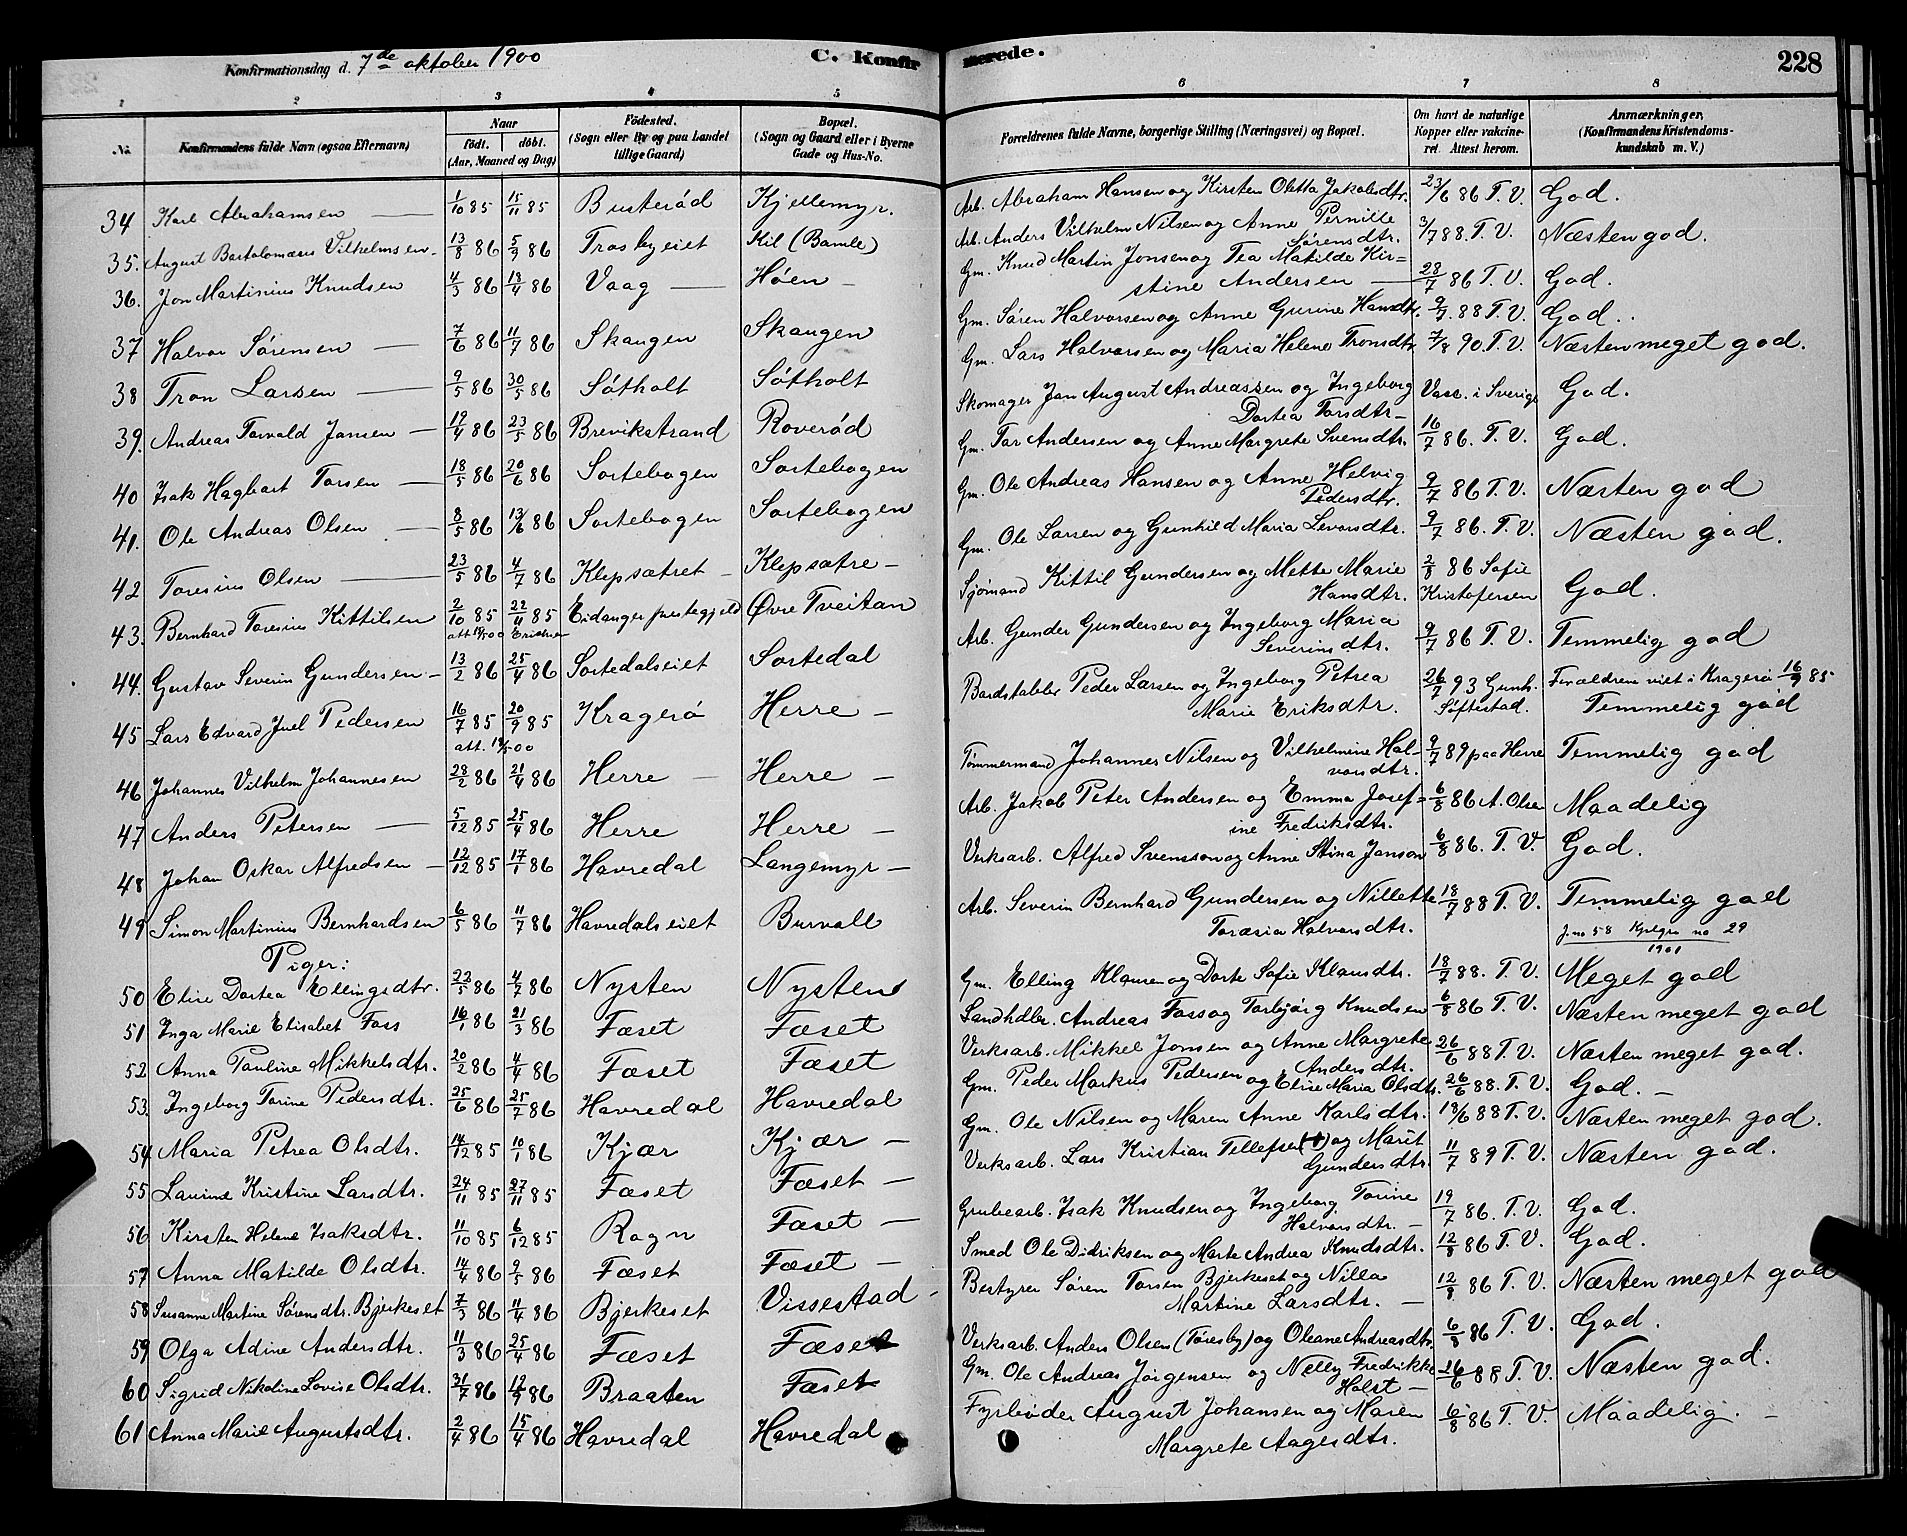 Konfirmationsdag d. 7de oktober 1900 C. Konfirmerede. 228
1 2 3 4 5 6 7 8
No. Konfirmandens fulde Navn (ogsaa Efternavn) Naar født. døbt. (Aar, Maaned og Dag) Fødested. (Sogn eller By og paa Landet tillige Gaard) Bopæl. (Sogn og Gaard eller i Byerne Gade og Hus-No. Forældrenes fulde Navne, borgerlige Stilling (Næringsvei) og Bopæl. Om havt de naturlige Kopper eller vakcineret. Attest herom. Anmærkninger, (Konfirmandens Kristendomskundskab m. V.)
34 Karl Abrahamsen 1/10 85 15/11 85 Busterød Kjellemyr. Arb. Abraham Hansen og Kirsten Oletta Jakobsdtr. 23/6 86 T. V. God.
35. August Bartolomæus Vilhelmsen 13/8 86 5/9 86 Trosbyeiet Kil (Bamle) Arb. Anders Vilhelm Nilsen og Anne Pernille Sørensdtr. 3/7 88. T. V. Næsten god.
36. Jon Martinius Knudsen 4/3 86 18/4 86 Vaag Høen Gm. Knud Martin Jonsen og Tea Matilde Kirstine Andersen 28/7 86 T. V. God.
37 Halvor Sørensen 7/6 86 11/7 86 Skaugen Skaugen Gm. Søren Halvorsen og Anne Gurine Hansdtr. 9/7 88 T. V. God.
38 Tron Larsen 9/5 86 30/5 86 Søtholt Søtholt Gm. Lars Halvorsen og Maria Helene Tronsdtr. 7/8 90. T. V. Næsten meget god.
39. Andreas Torvald Jansen 19/4 86 23/5 86 Brevikstrand Roverød Skomager Jan August Andreassen og Ingeborg Dortea Torsdtr. Vacc. i Sverige God.
40 Isak Hagbart Torsen 18/5 86 20/6 86 Sortebogen Sortebogen Gm. Tor Andersen og Anne Margrete Svensdtr. 16/7 86. T. V. God.
41. Ole Andreas Olsen 8/5 86 13/6 86 Sortebogen Sortebogen Gm. Ole Andreas Hansen og Anne Helvig Pedersdtr. 9/7 86 T. V. Næsten god
42 Toresius Olsen 23/5 86 4/7 86 Klepsætret Klepsætre Gm. Ole Larsen og Gunhild Maria Levorsdtr. 9/7 86. T. V. Næsten god.
43. Bernhard Toresius Kittilsen 2/10 85 22/11 85 Eidanger prestegjeld Øvre Tveitan Sjømand Kittil Gundersen og Mette Marie Hansdtr. 2/8 86 Sofie Kristofersen God.
44. Gustav Severin Gundersen 13/2 86 25/4 86 Sortedalseiet Sortedal Arb. Gunder Gundersen og Ingeborg Maria Severinsdtr. 9/7 86 T. V. Temmelig god
45 Lars Edvard Juel Pedersen 16/7 85 20/9 85 Kragerø Herre Bordstabler Peder Larsen og Ingeborg Petrea Marie Eriksdtr. 26/7 93 Gunh. Siftestad. Forældrene viet i Kragerø 16/9 85 Temmelig god
46 Johannes Vilhelm Johannesen 28/2 86 21/4 86 Herre Herre Tømmermand Johannes Nilsen og Vilhelmine Halvorsdtr. 9/7 89 paa Herre Temmelig god
47 Anders Petersen 5/12 85 25/4 86 Herre Herre Arb. Jakob Peter Andersen og Emma Josefine Fredriksdtr. 6/8 86 A. Olsen Maadelig
48 Johan Oskar Alfredsen 12/12 85 17/1 86 Havredal Langemyr Verksarb. Alfred Svensson og Anne Stina Janson 6/8 86. T. V. God.
49 Simon Martinius Bernhardsen 6/5 86 11/7 86 Havredalseiet Burvall Arb. Severin Bernhard Gundersen og Nillette Toræsia Halvorsdtr. 18/7 88 T. V. Temmelig god
J.no 58 no 29 1901
Piger:
50 Elise Dortea Ellingsdtr. 23/5 86 4/7 86 Nysten Nysten Gm. Elling Klausen og Dorte Sofie Klausdtr. 18/7 88. T. V. Meget god
51 Inga Marie Elisabet Foss 16/1 86 21/3 86 Fæset Fæset Landhdlr. Andreas Foss og Torbjørg Knudsen 6/8 86 T. V. Næsten meget god
52 Anna Pauline Mikkelsdtr. 20/2 86 4/4 86 Fæset Fæset Verksarb. Mikkel Jonsen og Anne Margrete Andersdtr. 26/6 88 T. V. Næsten meget god.
53. Ingeborg Torine Pedersdtr. 25/6 86 25/7 86 Havredal Havredal Gm. Peder Markus Pedersen og Elise Maria Olsdtr. 26/6 88. T. V. God.
54 Maria Petrea Olsdtr. 14/12 85 10/1 86 Kjær Kjær Gm. Ole Nilsen og Maren Anne Karlsdtr. 18/6 88 T. V. Næsten meget god.
55 Laurine Kristine Larsdtr. 24/11 85 27/11 85 Fæset Fæset Verksarb. Lars Kristian Tellefsen (+) og Marit Gundersdtr. 11/7 89 T. V. Næsten god.
56 Kirsten Helene Isaksdtr. 11/10 85 6/12 85 Rogn Fæset Grubearb. Isak Knudsen og Ingeborg Torine Halvorsdtr. 19/7 86. T. V. God.
57 Anna Matilde Olsdtr. 14/4 86 9/5 86 Fæset Fæset Smed Ole Didriksen og Marte Andrea Knudsdtr. 12/8 86 T. V. God.
58 Susanne Martine Sørensdtr. Bjerkeset 7/3 86 11/4 86 Bjerkeset Vissestad Bestyrer Søren Torsen Bjerkeset og Nilla Martine Larsdtr. 12/8 86 T. V. Næsten meget god
59 Olga Adine Andersdtr. 11/3 86 25/4 86 Fæset Fæset Verksarb. Anders Olsen (Toresby) og Oleane Andreasdtr. 6/8 86 T. V. God.
60 Sigrid Nikoline Lovise Olsdtr. 31/7 86 12/9 86 Braaten Fæset Gm. Ole Andreas Jørgensen og Nelly Fredrikke Holst 26/6 88 T. V. Næsten god.
61 Anna Marie Augustsdtr. 2/4 86 15/4 86 Havredal Havredal Fyrbøder August Johansen og Maren Margrete Aagesdtr. 6/8 86 T. V. Maadelig.